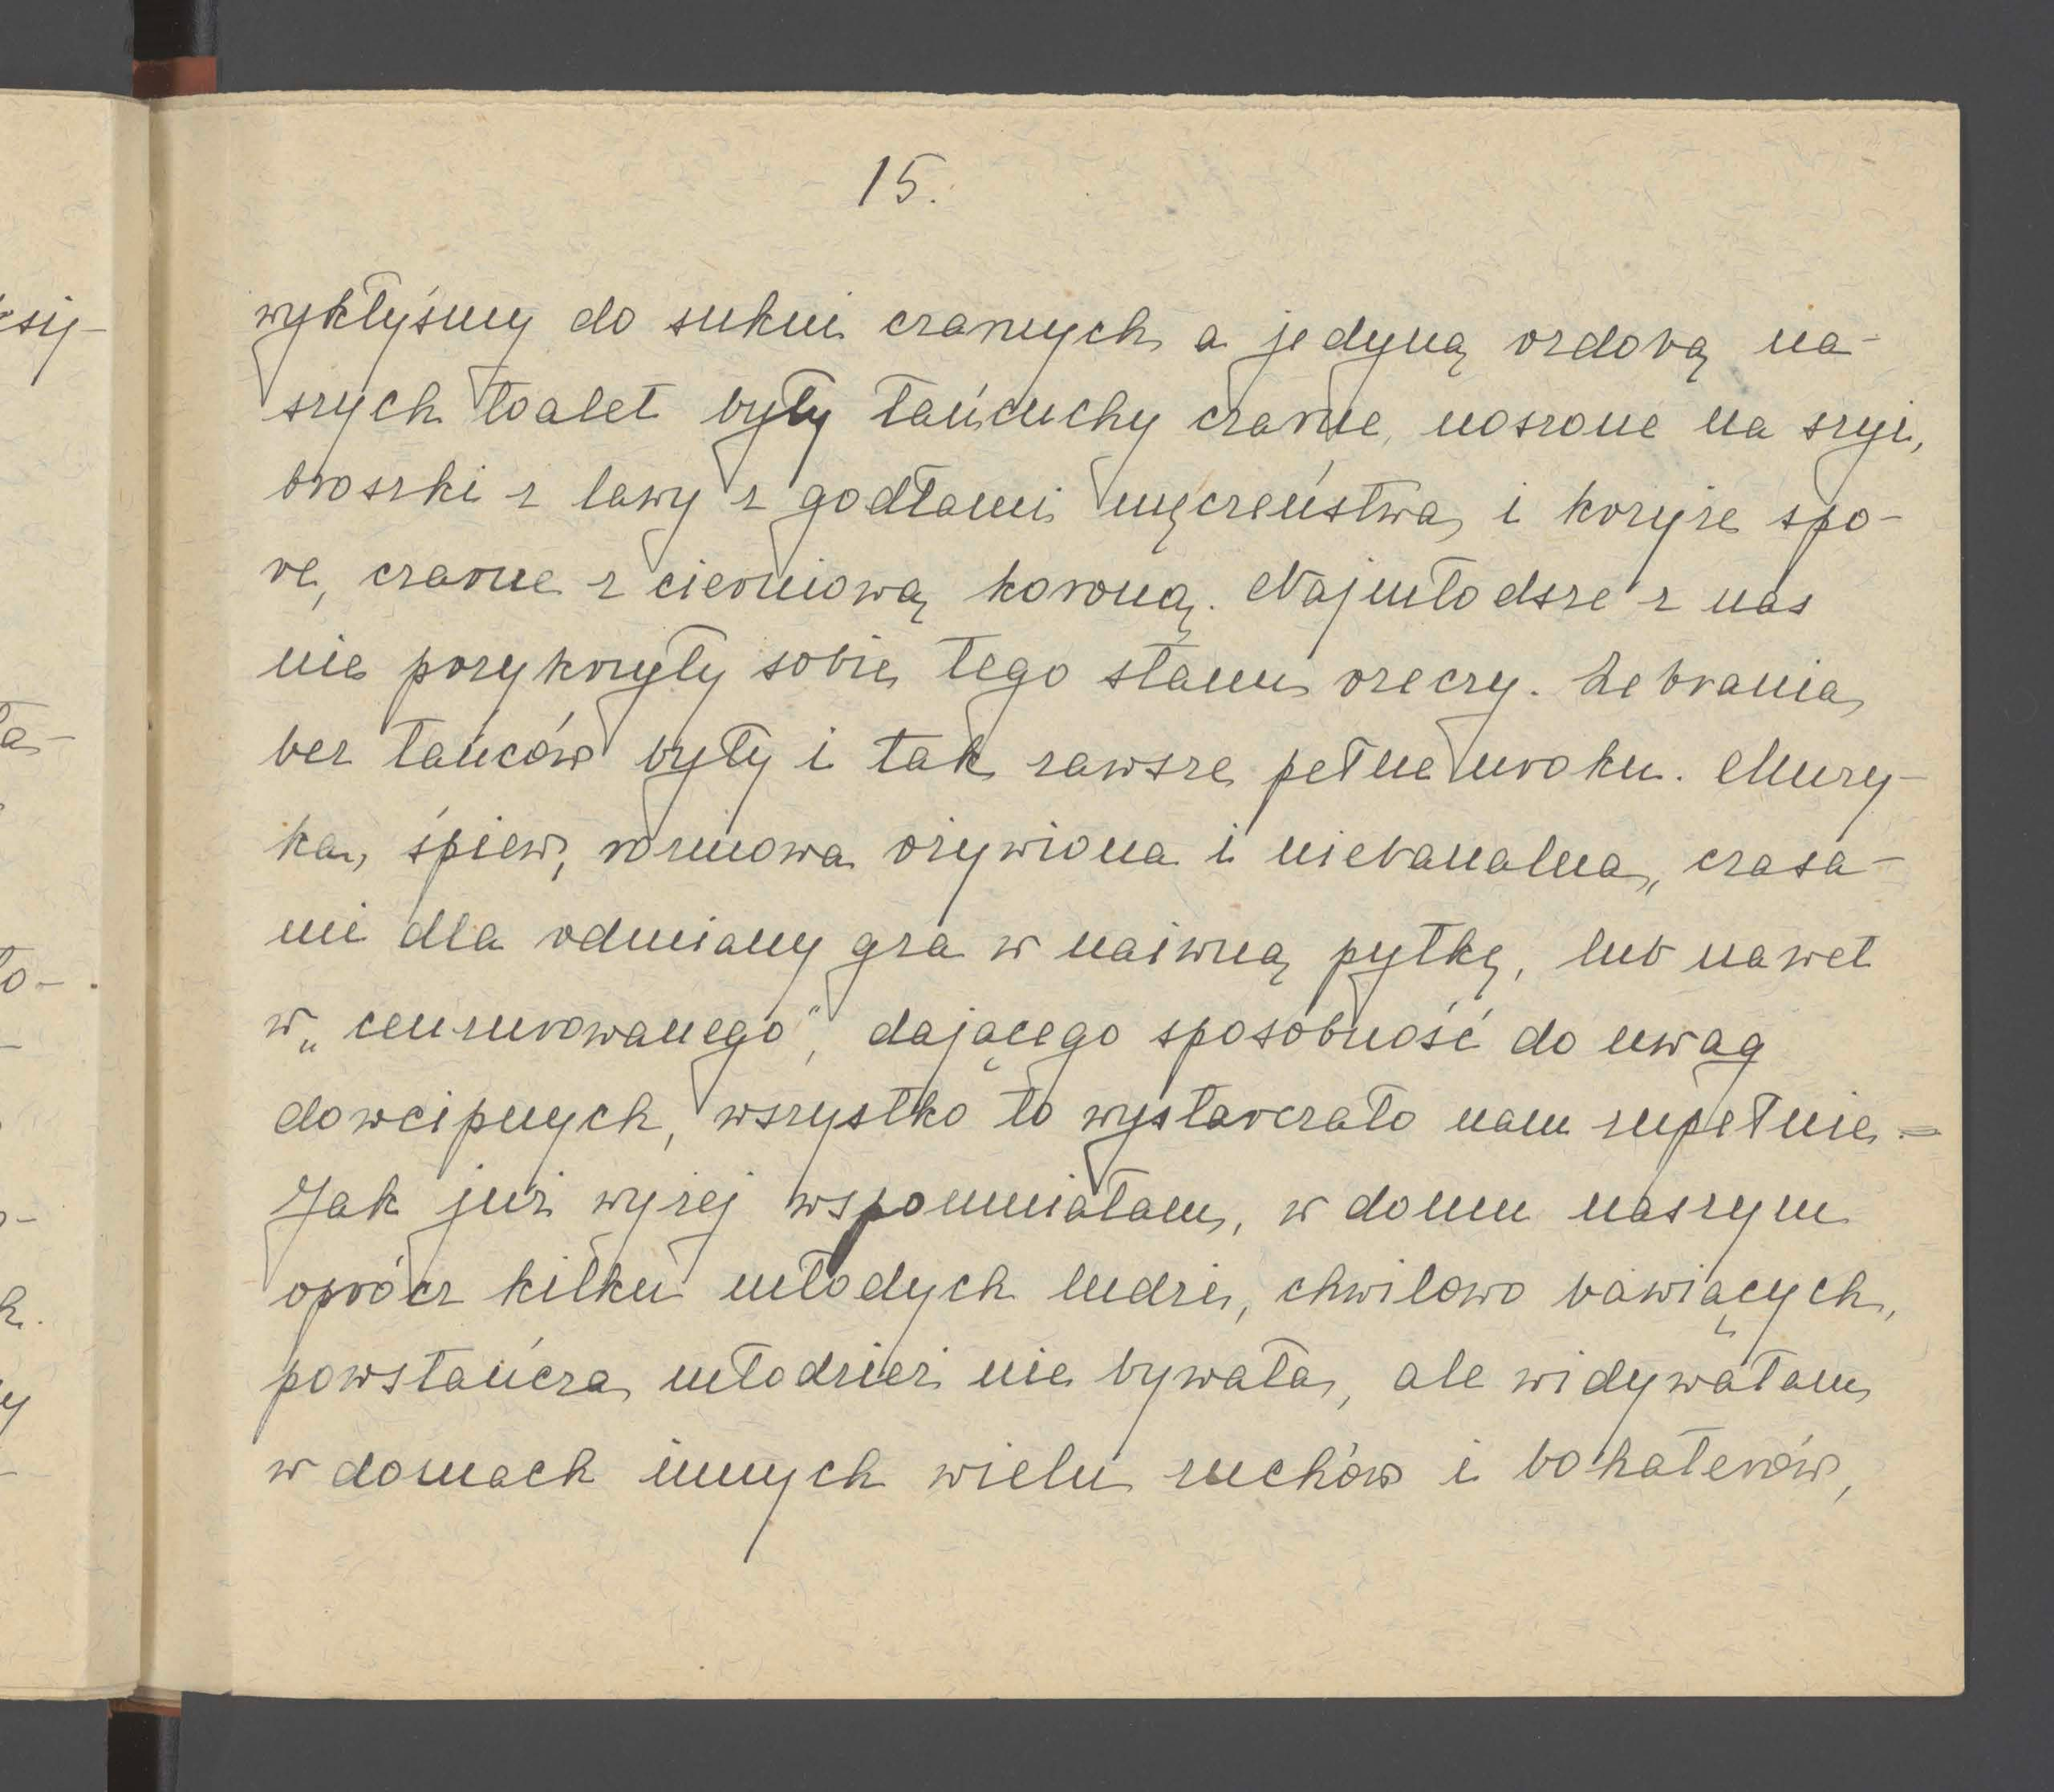 15.
wykłyśmy do sukni czarnych a jedyną ozdobą na-
szych toalet były łańcuchy czarne, noszone na szyi,
broszki z lawy z godłami męczeństwa i krzyże spo-
re, czarne z cierniową koroną. Najmłodsze z nas
nie przykrzyły sobie tego stanu rzeczy. Zebrania
bez tańców były i tak zawsze pełne uroku. Muzy-
ka, śpiew, rozmowa ożywiona i niebanalna, czasa-
mi dla odmiany gra w naiwną pytkę, lub nawet
w „cenzurowanego", dającego sposobność do uwag
dowcipnych, wszystko to wystarczało nam zupełnie. =
Jak już wyżej wspomniałam, w domu naszym
oprócz kilku młodych ludzi, chwilowo bawiących,
powstańcza młodzież nie bywała, ale widywałam
w domach innych wielu zuchów i bohaterów,
się-
ła-
ło-
k.
y